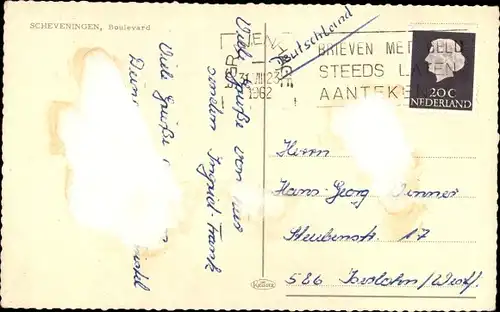 SCHEVENINGEN, Boulevard
Viele Grüße
Deine
Viele Grüße von uns
senden Ingrid-Frank
Deutschland
31.XII.23
1962
BRIEVEN MET GELD
STEEDS LATEN
AANTEKENEN
20 C
NEDERLAND
Herrn
Hans-Georg
Steubenstr. 17
586 Iserlohn/Westf.